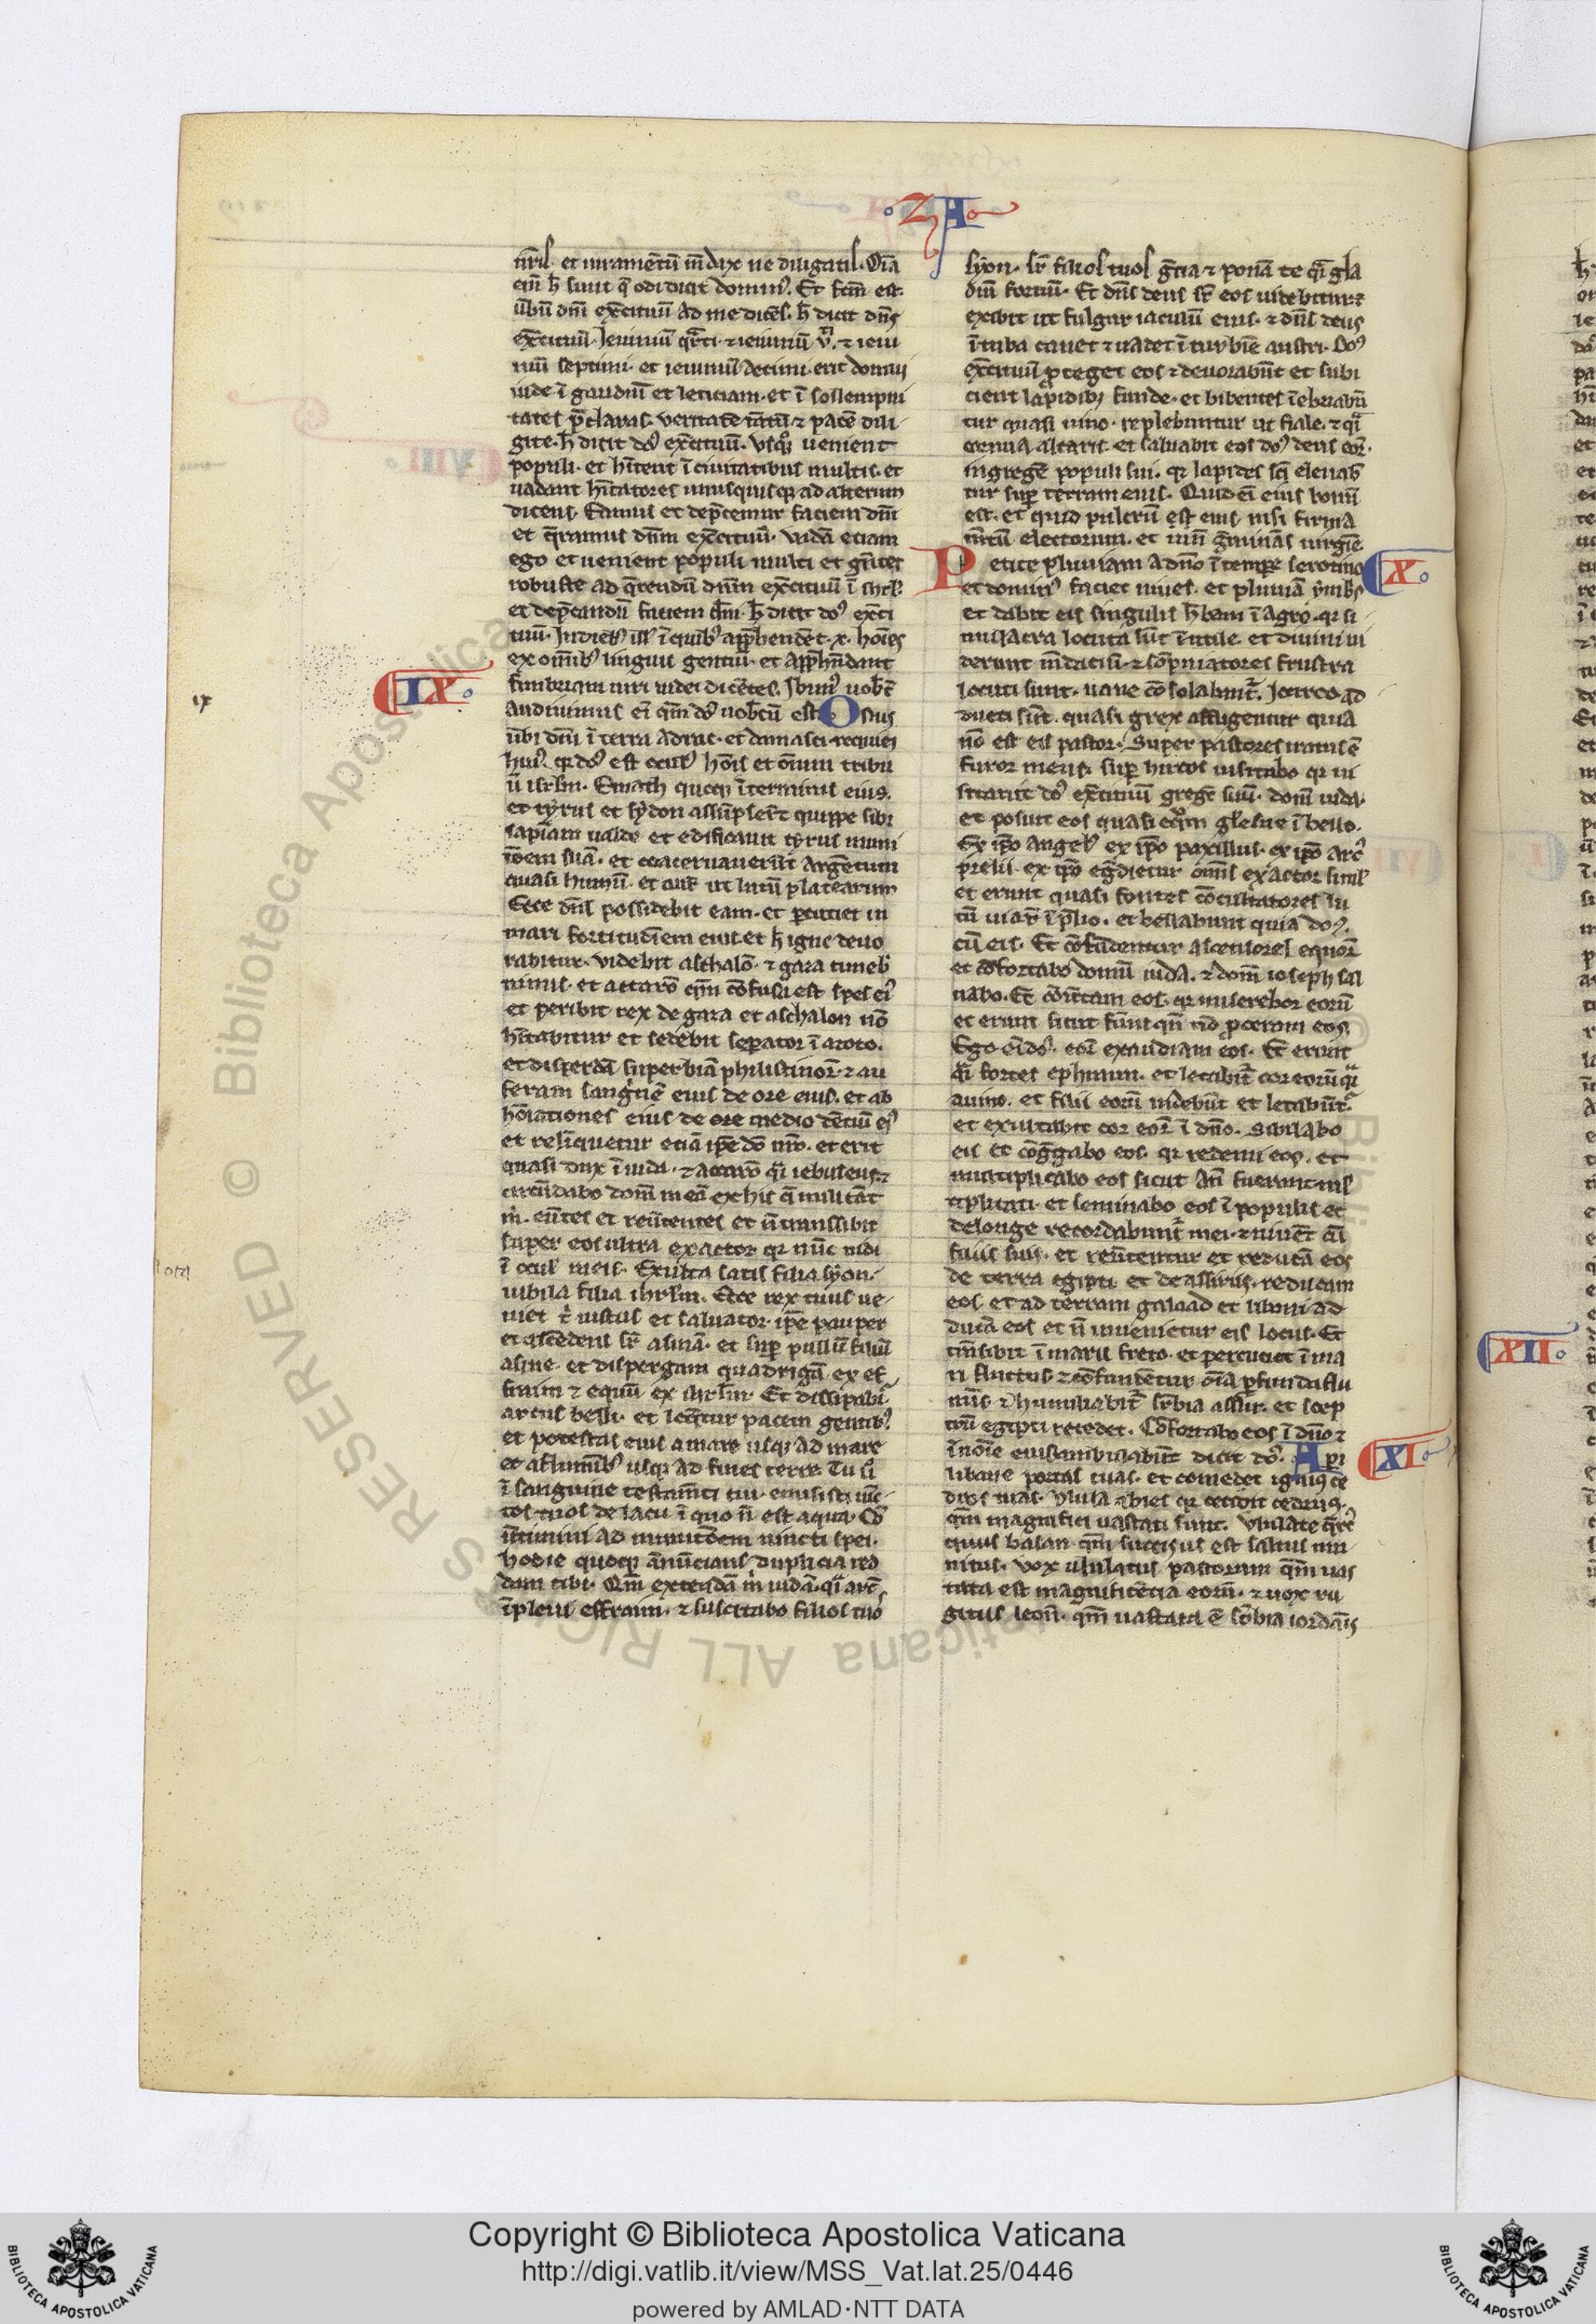 ·ZA·
nr̄is· et iuramentū m̄dax ne diligatis· Oīa
eni h̄ sunt q̄ odi dicit dominus. Et fcm̄ est·
ūbū dn̄i exc̄ituū ad me dicēs. h̄ dicit dn̄s
exc̄ituū· Jeiuniū qr̄ti· ⁊ ieiuniū v̄ti· ⁊ ieiu
niū septimi· et ieiuniū decimi· erit domui
iude ī gaudiū et leticiam· et ī sollempni
tates p̄claras· veritatē tm̄ ⁊ pacē dili
gite· h̄ dicit do͛ exc̄ituū· Usqꝫ uenient
populi· et hītent ī ciuitatibus multis· et
uadant hītatores unusquisqꝫ ad alterum
dicens· Eamus et dep̄cemur faciem dn̄i
et q̄ramus dn̄m exc̄ituū· vadā etiam
ego et uenient populi multi et gn̄tes
robuste ad q̄rendū dn̄m exc̄ituū ī ihrl̄m
et dep̄candū faciem dn̄i· h̄ dicit do͛ exc̄i
tuū· In dieb͛ ill̄ ī quib͛ app̄hendēt· x· hoīes
ex omīb͛ linguis gentiū· et app̄hn̄dant
fimbriam uiri iudei dicētes· Ibim͛ uobc̄
audiuimus eī qm̄ do͛ uobc̄ū est· Onus
ūbi dn̄i ī terra adrac· et damasci requiei
hui͛ qꝛ do͛ est ocul͛ hoīs et oīum tribu
ū isrl̄m· Emath quoqꝫ ī terminis eius·
et tyrus et sydon assūpser̄t quippe sibi
sapīam ualde et edificauit tyrus muni
tōem suā· et coaceruauer̄t argētum
quasi humū· et aur̄ ut lutū platearum
Ecce dn̄s possidebit eam· et percuciet in
mari fortitudīem eius et h̄ igne deuo
rabitur· videbit aschalō· ⁊ gaza timeb̄
nimis· et accarō qm̄ cōfusa est spes ei͛
et peribit rex de gaza et aschalon nō
hītabitur et sedebit sep̄ator ī azoto.
et disperdā superbiā philistinoꝝ· ⁊ au
feram sanginē eius de ore eius· et ab
hoīationes eius de ore medio dētiū ei͛
et relīquetur etiā ip̄e dō nr̄o· et erit
quasi dux ī iuda· ⁊ accarō q̄i iebuseus· ⁊
circūdabo domū meā ex his q̄ militāt
m̄· eūtes et reūtentes et ñ transsibit
super eos ultra exactor qꝛ nūc uidi
ī ocul͛ meis· Exulta satis filia syon·
iubila filia ihrl̄m· Ecce rex tuus ue
niet t̄ iustus et saluator· ip̄e pauper
et ascēdens sr̄ asinā· et sup̄ pullū filiū
asine· et dispergam quadrigā ex ef
fraim ⁊ equū ex ihrl̄m· Et dissipabit̄
arcus belli· et loq̄tur pacem gentib͛
et potestas eius a mare usqꝫ ad mare
et a flumīb͛ usqꝫ ad fines terre· Tu q̊
ī sanguine testam̄ti tui· emisisti uīc
tos tuos de lacu ī quo ñ est aqua· Cō
ūtimini ad munitōem uincti spei·
hodie quoqꝫ annūcians duplicia red
dam tibi· Qm̄ extendā m̄ iudā· q̄i arc̄
īpleui effraim· ⁊ suscitabo filios tuos
syon· sr̄ filios tuos grecia ⁊ ponā te q̄i gla
diū fortiū· Et dn̄s deus sr̄ eos uidebitur ⁊
exibit ut fulgur iaculū eius· ⁊ dn̄s deus
ī tuba canet ⁊ uadet ī turbīe austri· Do͛
exc̄ituū proteget eos ⁊ deuorabūt et subi
cient lapidibꝫ funde· et bibentes īebriabū
tur quasi uino· replebuntur ut fiale· ⁊ q̄i
cornua altaris· et saluabit eos do͛ deus eoꝝ·
in gregē populi sui· qꝛ lapides sc̄i eleuab̄
tur sup̄ terram eius· Quid eī eius bonū
est· et quid pulcrū est eius· nisi firma
mētū electorum· et uinū gm̄inās uirgīes
Petite pluuiam a dn̄o ī tempore serotino
et domin͛ faciet niues· et pluuiā ymbris
et dabit eis singulis h̄bam ī agro· qꝛ si
mulacra locuta sūt īutile· et diuini ui
derunt m̄daciū· ⁊ sōpniatores frustra
locuti sunt· uane cōsolabunt̄· Iccirco ab
ducti sūt· quasi grex affligentur quia
nō est eis pastor· Super pastores iratus ē
furor meus· sup̄ hircos uisitabo qꝛ ui
sitauit do͛ exc̄ituū gregē suū· domū iuda·
et posuit eos quasi equū gl̄esue ī bello·
Ex ip̄o angel͛ ex ip̄o paxillus· ex ip̄o arc͛
prelii· ex ip̄o eḡdietur omīs exactor simul
et erunt quasi fortes cōculcatores lu
tū uiaꝝ ī p̄lio· et bellabunt quia do͛·
cū eis· Et cōfūdentur ascensores equoꝝ
et cōfortabo domū iuda· ⁊ domū ioseph sal
uabo· Et cōūtam eos· qꝛ miserebor eorū
et erunt sicut fūnt qn̄ nō p̄ieceram eos·
Ego eī do͛· eoꝝ exaudiam eos· Et erunt
q̄i fortes ephraim· et letabit̄ cor eorū q̄i
a uino· et filii eorū uidebūt et letabūt̄·
et exultabit cor eoꝝ ī dn̄o· Sibilabo
eis et cōḡgabo eos· qꝛ redemi eos· et
multiplicabo eos sicut an̄ fuerant mul
tiplicati· et seminabo eos ī populis et
de longe recordabunt̄ mei· ⁊ uiuēt cū
filiis suis· et reūtentur et reducā eos
de terra egipti et de assiriis· reducam
eos· et ad terram galaad et libani ad
ducā eos et ñ inuenietur eis locus· Et
trāsibit ī maris freto· et percuciet ī ma
ri fluctus ⁊ cōfundētur oīa p̄funda flu
minis· ⁊ humiliabit̄ sr̄bia assur· et scep
trū egipti recedet· Cōfortabo eos ī dn̄o ⁊
ī noīe eius ambulabūt dicit do͛· Aperi
libane portas tuas· et comedet ignis ce
dros tuas· Ulula abies qꝛ cecidit cedrus·
qm̄ magnifici uastati sunt· Ululate q̄rc͛
quus basan· qm̄ succisus est saltus mu
nitus· Vox ululatus pastorum qm̄ uas
tata est magnificētia eorū· ⁊ uox ru
gitus leonū· qm̄ uastata ē sr̄bia iordāis
IX·
ix
X·
XI·
XII·
© Biblioteca Apostolica Vaticana ALL RIGHTS RESERVED
Copyright © Biblioteca Apostolica Vaticana
http://digi.vatlib.it/view/MSS_Vat.lat.25/0446
powered by AMLAD·NTT DATA
BIBLIOTECA APOSTOLICA VATICANA
BIBLIOTECA APOSTOLICA VATICANA